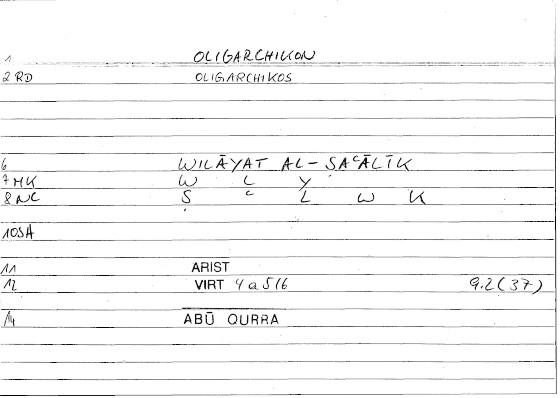 1 OLIGARCHIKON
2 RD OLIGARCHIKOS
6 WILĀYAT AL-ṢAʿĀLĪK
7 MK W L Y
8 NC Ṣ ʿ L W K
10 SA
11 ARIST
12 VIRT 4 a 5/6 9.2 (37)
14 ABŪ QURRA